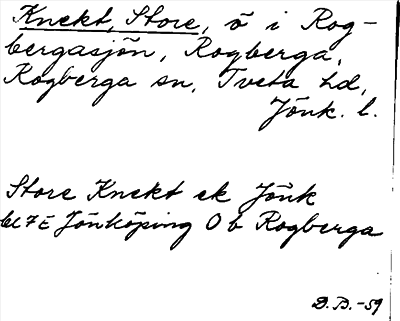 Knekt, Store, ö i Rog-
bergasjön, Rogberga,
Rogberga sn, Tveta hd,
Jönk. l.
Store Knekt ek Jönk
bl 7 E Jönköping Ob Rogberga
D.B.-59